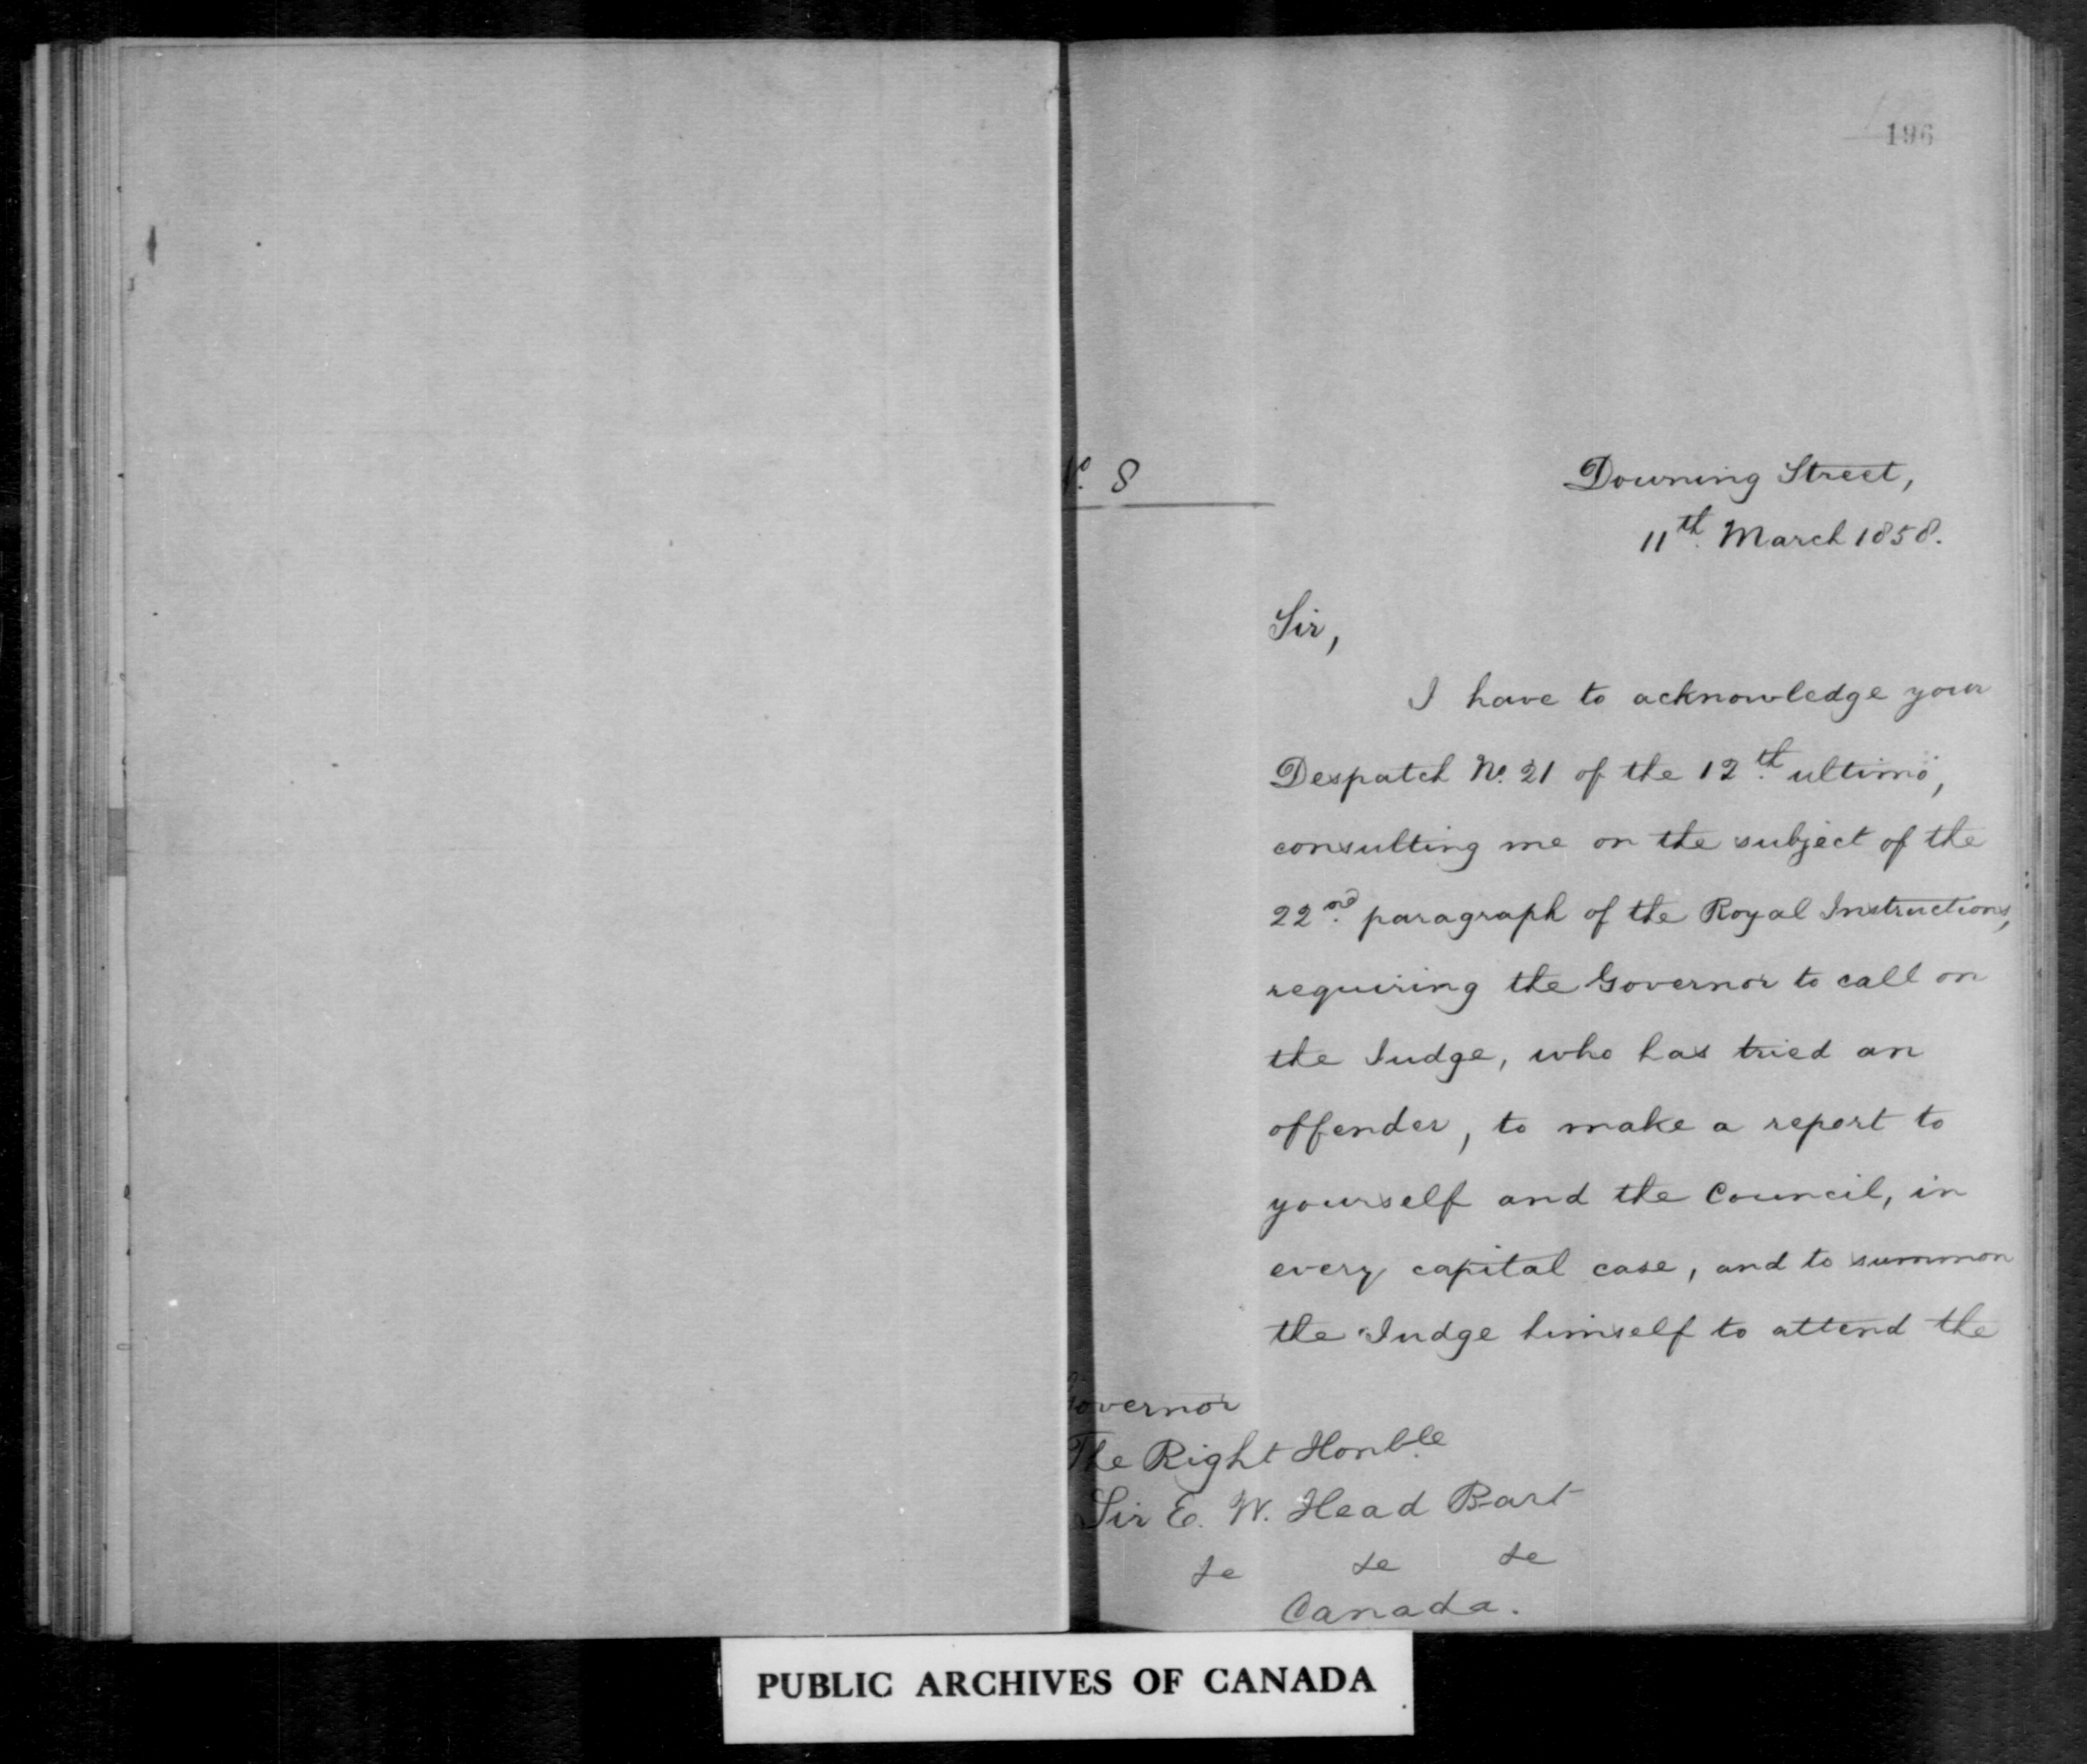 196
No. 8
Downing Street,
11th. March 1858.
Sir,
I have to acknowledge your
Despatch No. 21 of the 12th. ultimo,
consulting me on the subject of the
22nd. paragraph of the Royal Instructions,
requiring the Governor to call on
the Judge, who has tried an
offender, to make a report to
yourself and the Council, in
every capital case, and to summon
the Judge himself to attend the
Governor
The Right Honble.
Sir E. W. Head Bart
&c &c &c
Canada.
PUBLIC ARCHIVES OF CANADA